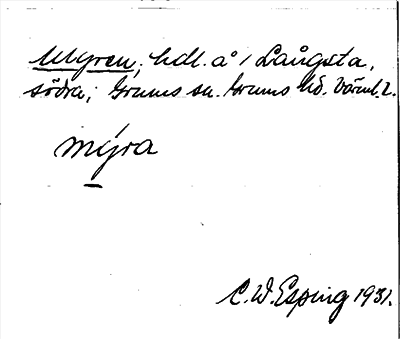 Myren, hdl. å i Långsta,
södra; Grums sn. Grums hd. Värml. l.
mýra
C.W. Esping 1931.